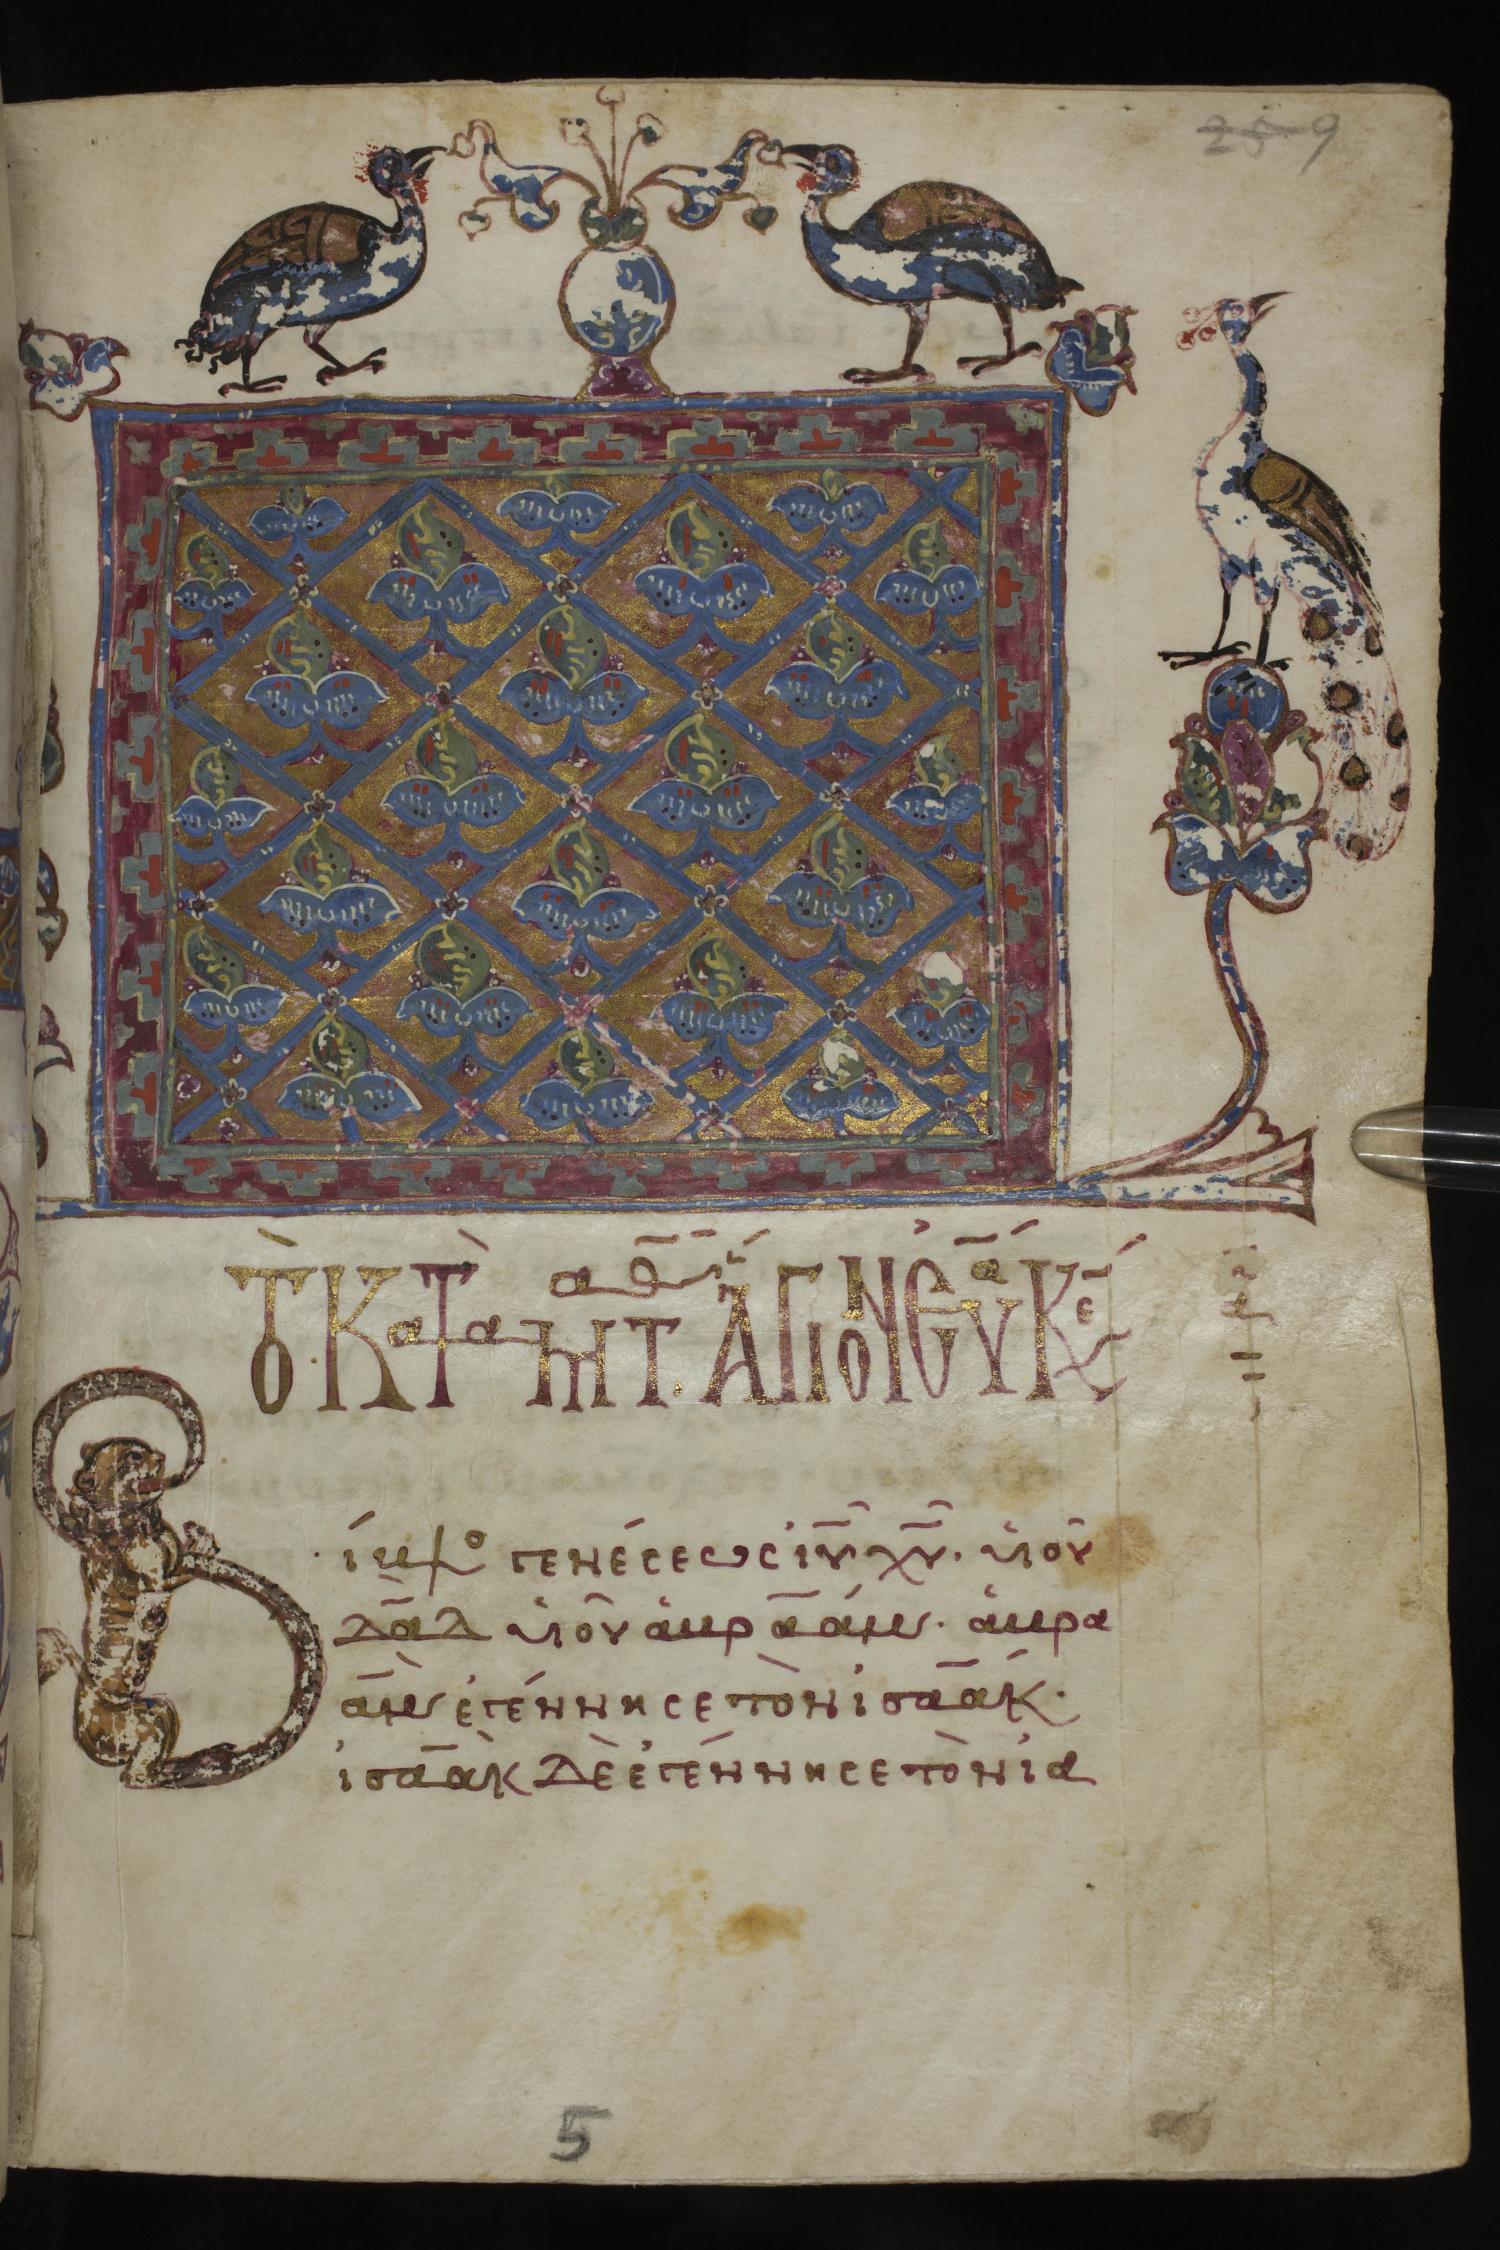 25 9
τὸ κατὰ ματθ ἅγιον εὐα
Βίβλο γενέσεως ἰυ χυ. υἱοῦ
δαδ υἱοῦ ἀβραάμ. ἀβρα
ὰμ ἐγέννησε τὸν ἰσαάκ.
ἰσαὰκ δὲ ἐγέννησε τὸν ἰα
5